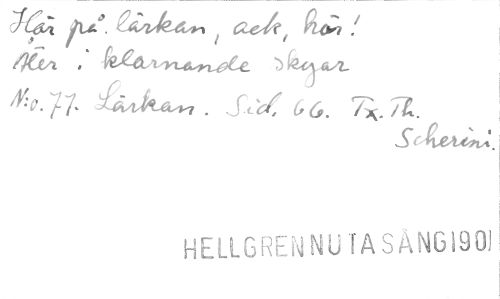 Hör på lärkan, ack, hör!
Åter i klarnande skyar
N:o. 77. Lärkan. Sid. 66. Tx. Th.
Scherini.
HELLGREN NUTA SÅNG 1901